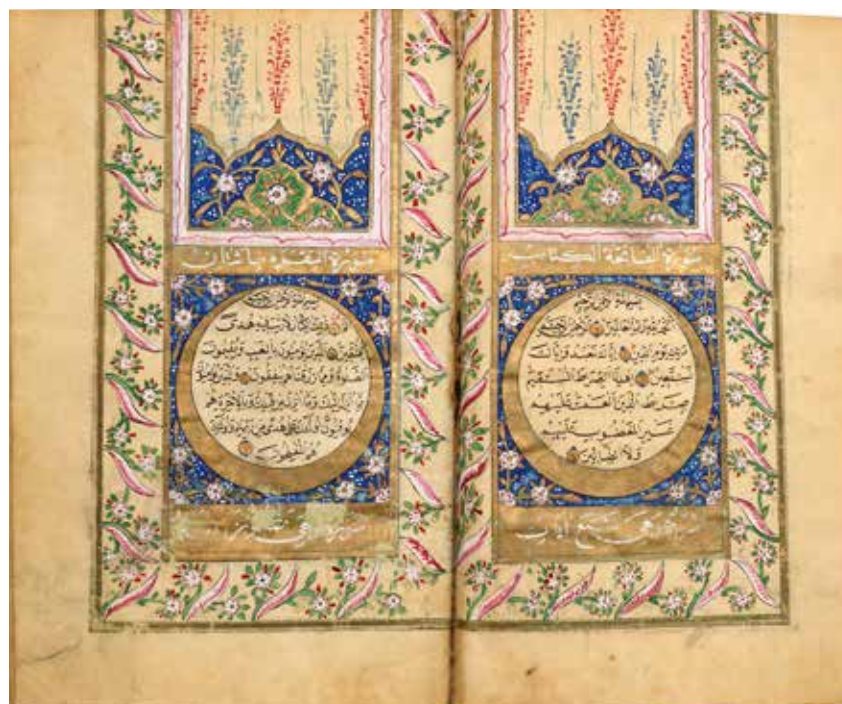 سورة الفاتحة الكتاب
بسم الله الرحمن الرحيم
الحمد لله رب العالمين الرحمن الرحيم
مالك يوم الدين اياك نعبد واياك
نستعين اهدنا الصراط المستقيم
صراط الذين انعمت عليهم
غير المغضوب عليهم
ولا الضالين
وهي سبع ايات
سورة البقرة
بسم الله الرحمن الرحيم
الم ذلك الكتاب لا ريب فيه هدى
للمتقين الذين يؤمنون بالغيب ويقيمون
الصلوة ومما رزقناهم ينفقون والذين يؤمنون
بما انزل اليك وما انزل من قبلك وبالاخرة هم
يوقنون اولئك على هدى من ربهم واولئك
هم المفلحون
وهي